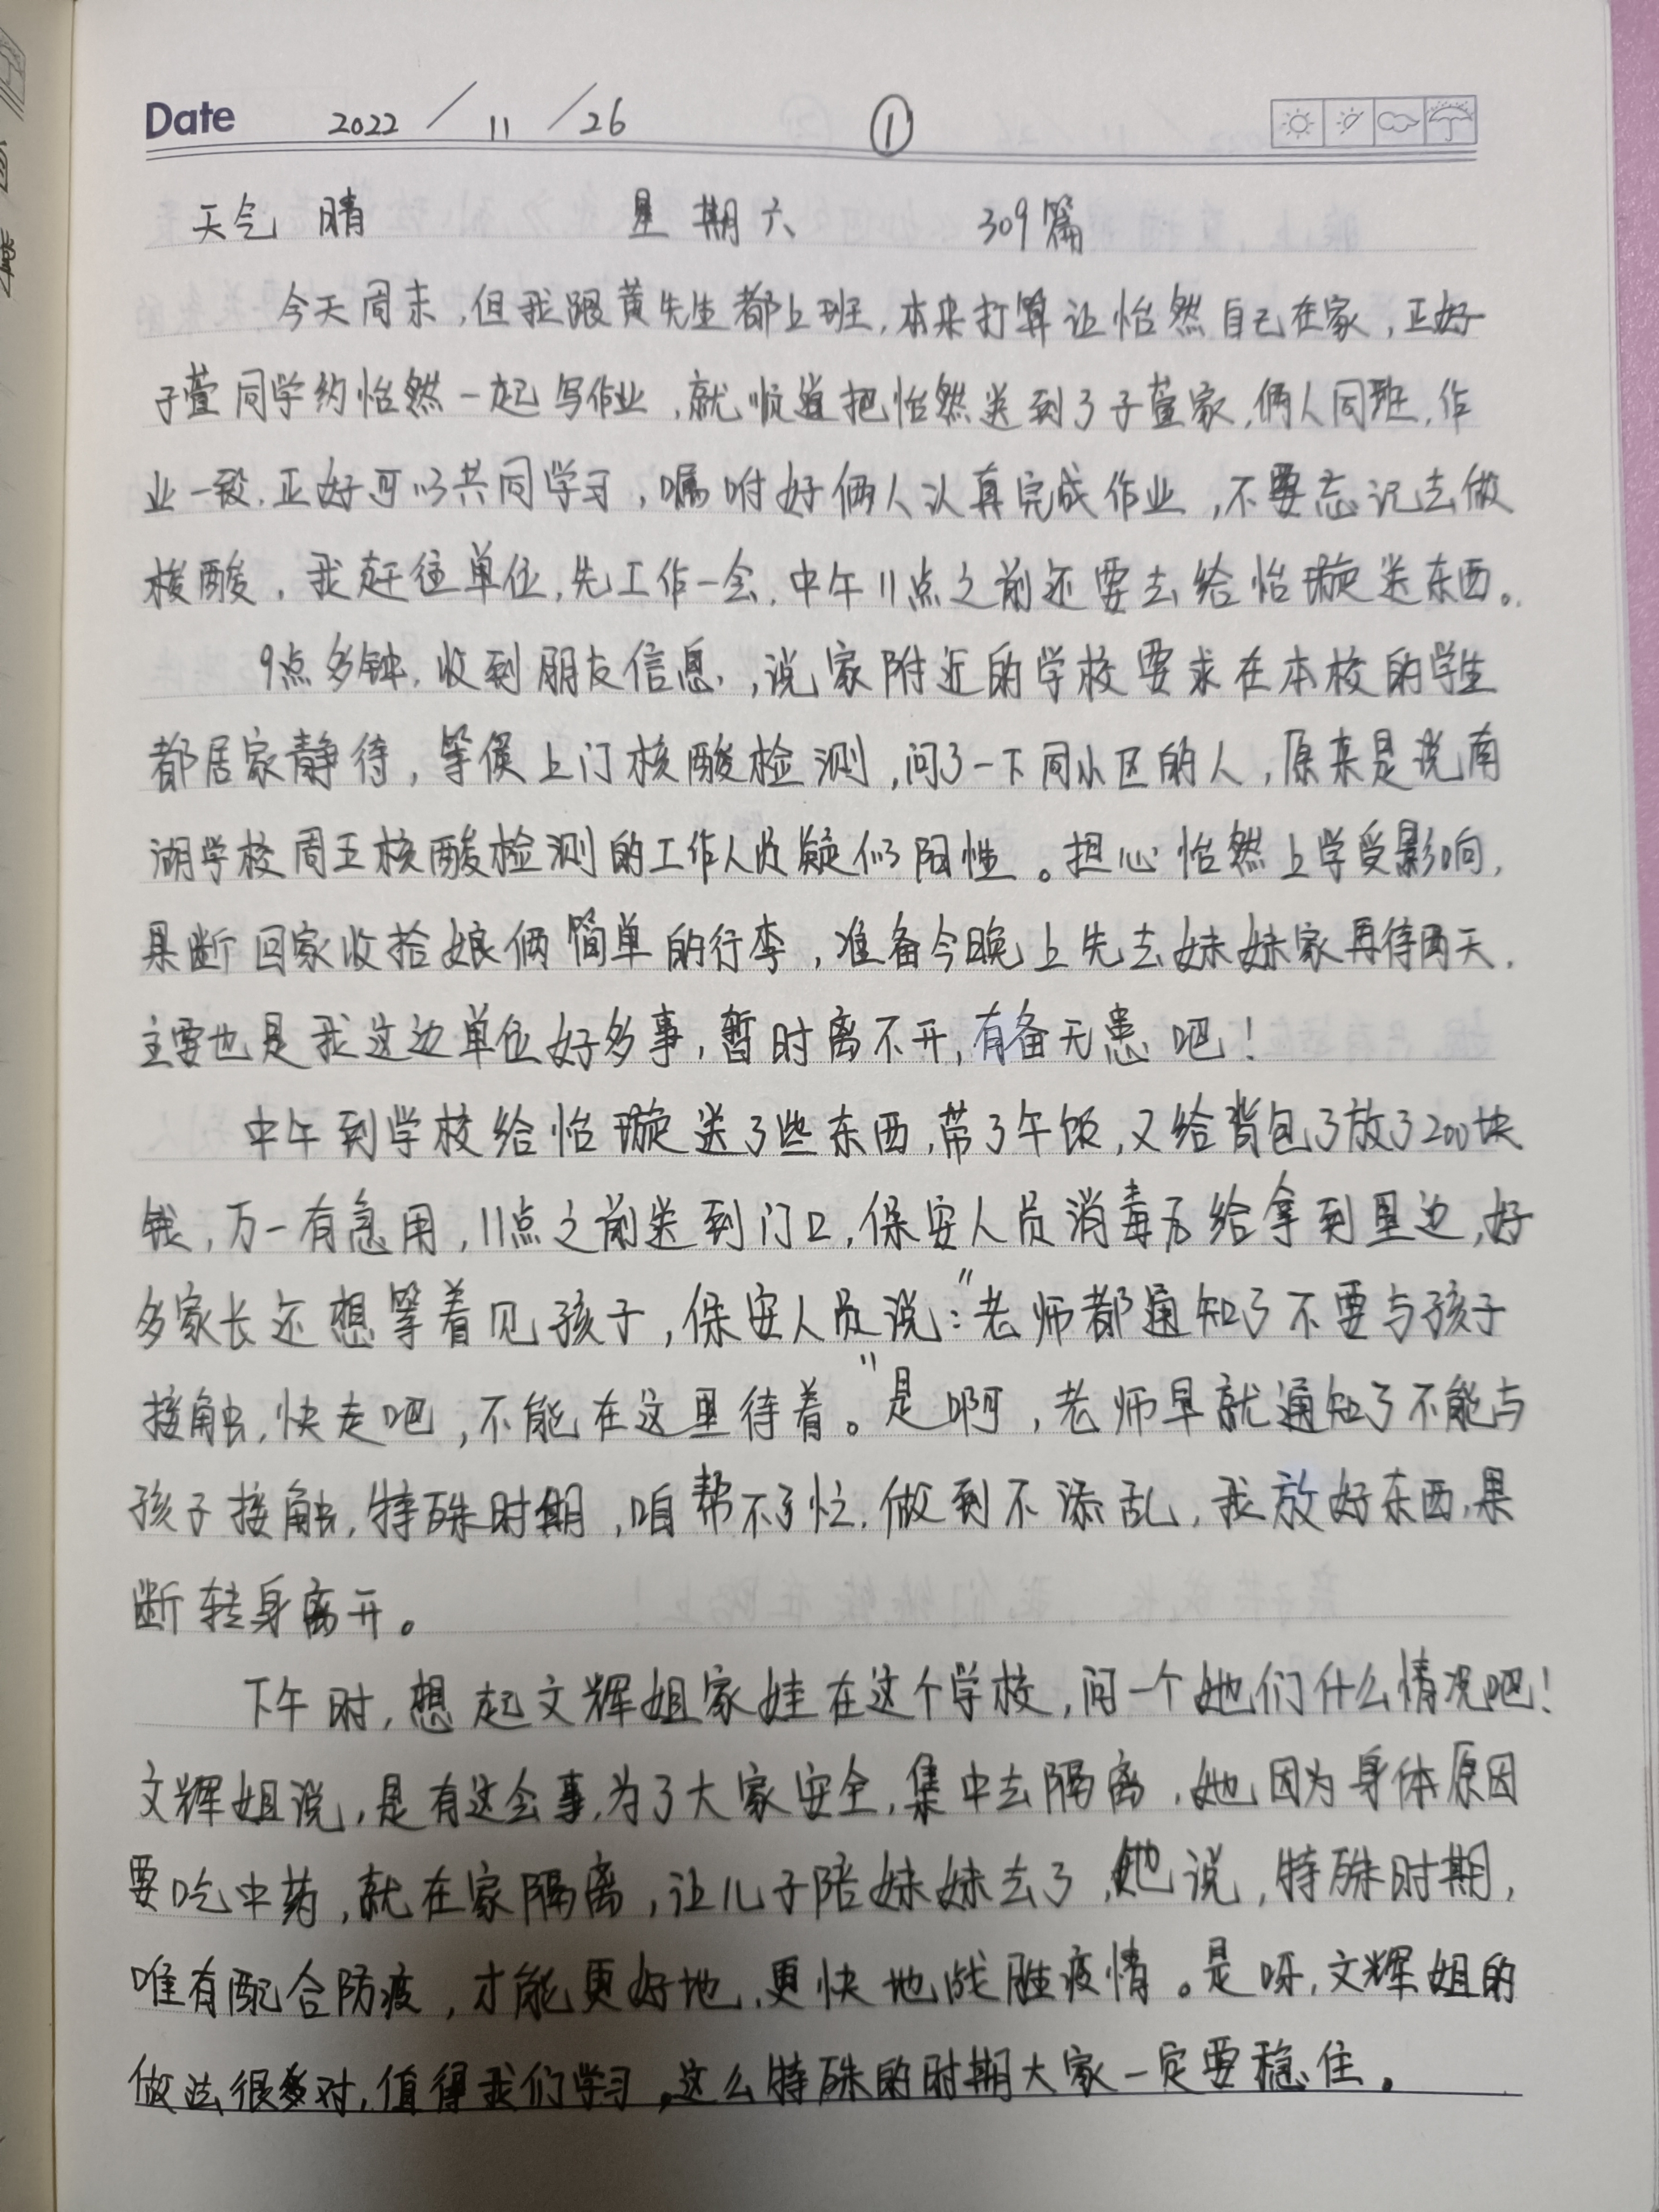 Date 2022 / 11 / 26 ①
天气 晴 星期六 309篇
今天周末,但我跟黄先生都上班,本来打算让怡然自己在家,正好
子萱同学约怡然一起写作业,就顺道把怡然送到了子萱家,俩人同班,作
业一致,正好可以共同学习,嘱咐好俩人认真完成作业,不要忘记去做
核酸,我赶往单位,先工作一会,中午11点之前还要去给怡璇送东西。
9点多钟,收到朋友信息,说家附近的学校要求在本校的学生
都居家静待,等候上门核酸检测,问了一下同小区的人,原来是说南
湖学校周五核酸检测的工作人员疑似阳性。担心怡然上学受影响,
果断回家收拾娘俩简单的行李,准备今晚上先去妹妹家再待两天,
主要也是我这边单位好多事,暂时离不开,有备无患吧!
中午到学校给怡璇送了些东西,带了午饭,又给背包了放了200块
钱,万一有急用,11点之前送到门口,保安人员消毒后给拿到里边,好
多家长还想等着见孩子,保安人员说:"老师都通知了不要与孩子
接触,快走吧,不能在这里待着。"是啊,老师早就通知了不能与
孩子接触,特殊时期,咱帮不了忙,做到不添乱,我放好东西,果
断转身离开。
下午时,想起文辉姐家娃在这个学校,问一个她们什么情况吧!
文辉姐说,是有这会事,为了大家安全,集中去隔离,她因为身体原因
要吃中药,就在家隔离,让儿子陪妹妹去了,她说,特殊时期,
唯有配合防疫,才能更好地,更快地战胜疫情。是呀,文辉姐的
做法很对,值得我们学习,这么特殊的时期大家一定要稳住。